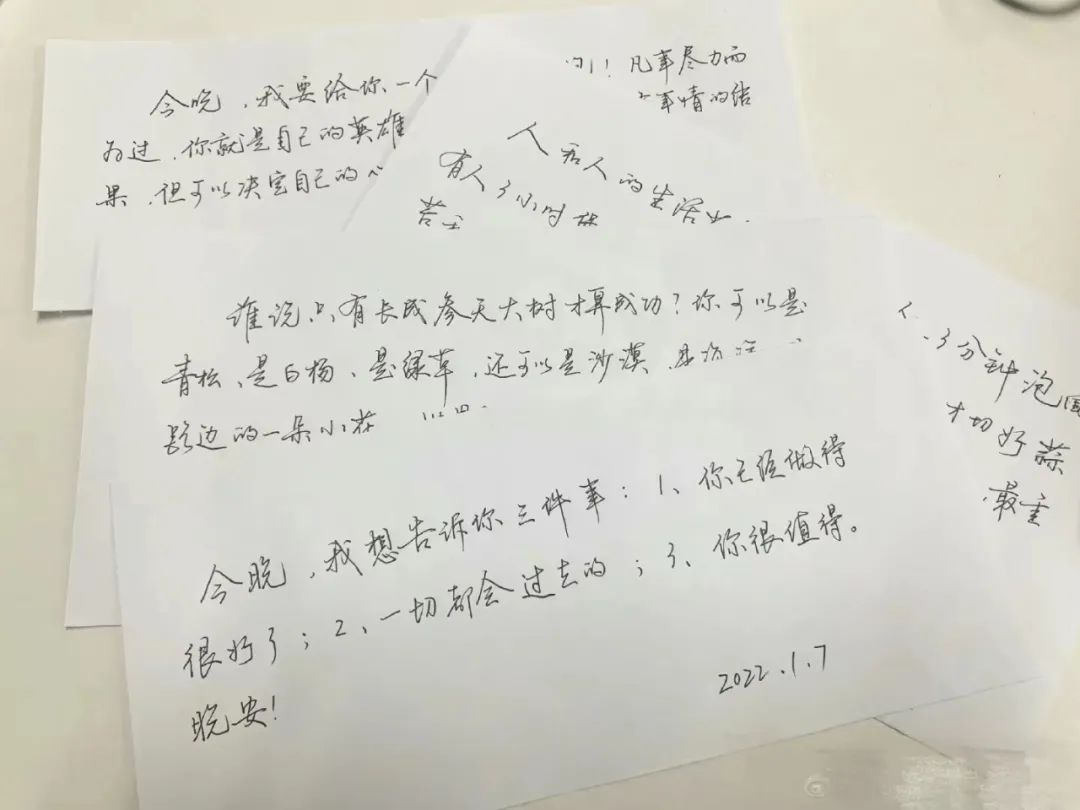 今晚，我要给你一个
为过，你就是自己的英雄
果，但可以决定自己的心
！凡事尽力而
事情的结
人和人的生活
有人3小时
苦
谁说只有长成参天大树才算成功？你可以是
青松、是白杨、是绿草，还可以是沙漠、是
路边的一朵小花
3分钟泡
才切好蒜
最重
今晚，我想告诉你三件事：1、你已经做得
很好了；2、一切都会过去的；3、你很值得。
晚安！
2022.1.7